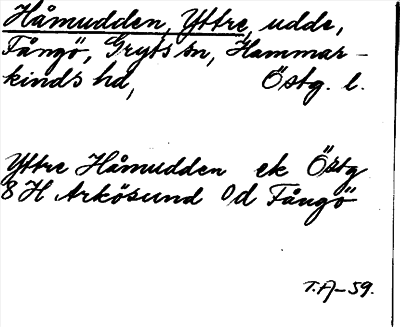 Håmudden, Yttre, udde,
Fångö, Gryts sn, Hammar-
kinds hd, Östg. l.
Yttre Håmudden ek Östg
8 H Arkösund 0d Fångö
T.A-59.